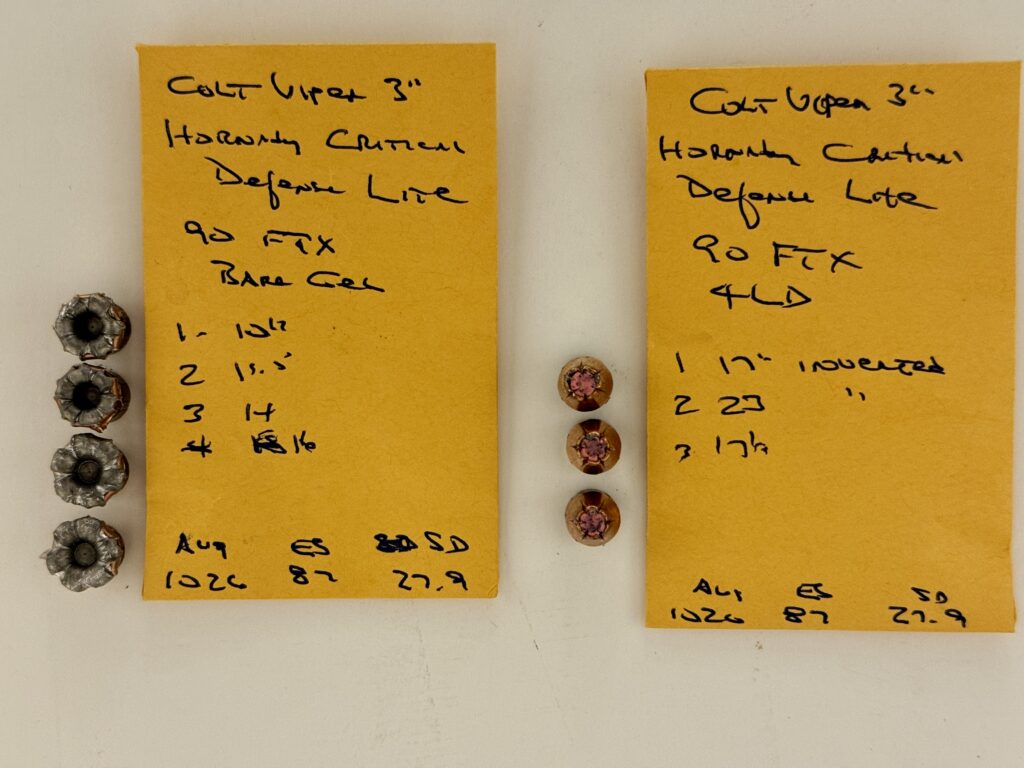 COLT Viper 3"
HORNADY CRITICAL
Defense LITE
90 FTX
BARE GEL
1-
2
3 14
4 16
Avg ES SD
1026 87 27.9
COLT Viper 3"
HORNADY CRITICAL
Defense Lite
90 FTX
4LD
1 17" INVERTED
2 23 "
3
Avg ES SD
1026 87 27.9